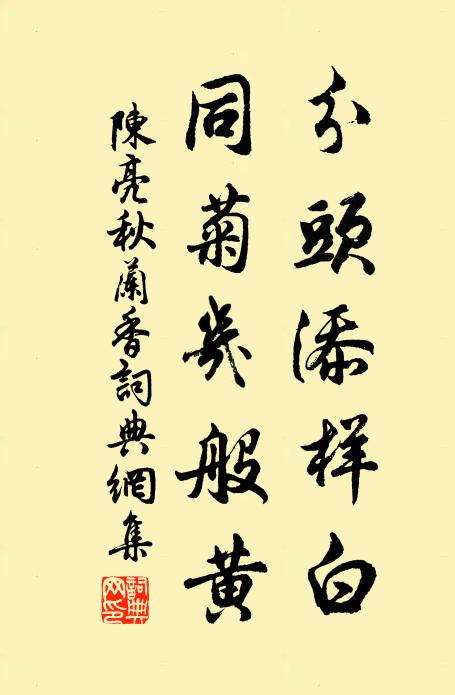 分頭添样白
同菊幾般黄
陳亮秋蘭香詞典網集
詞典网印